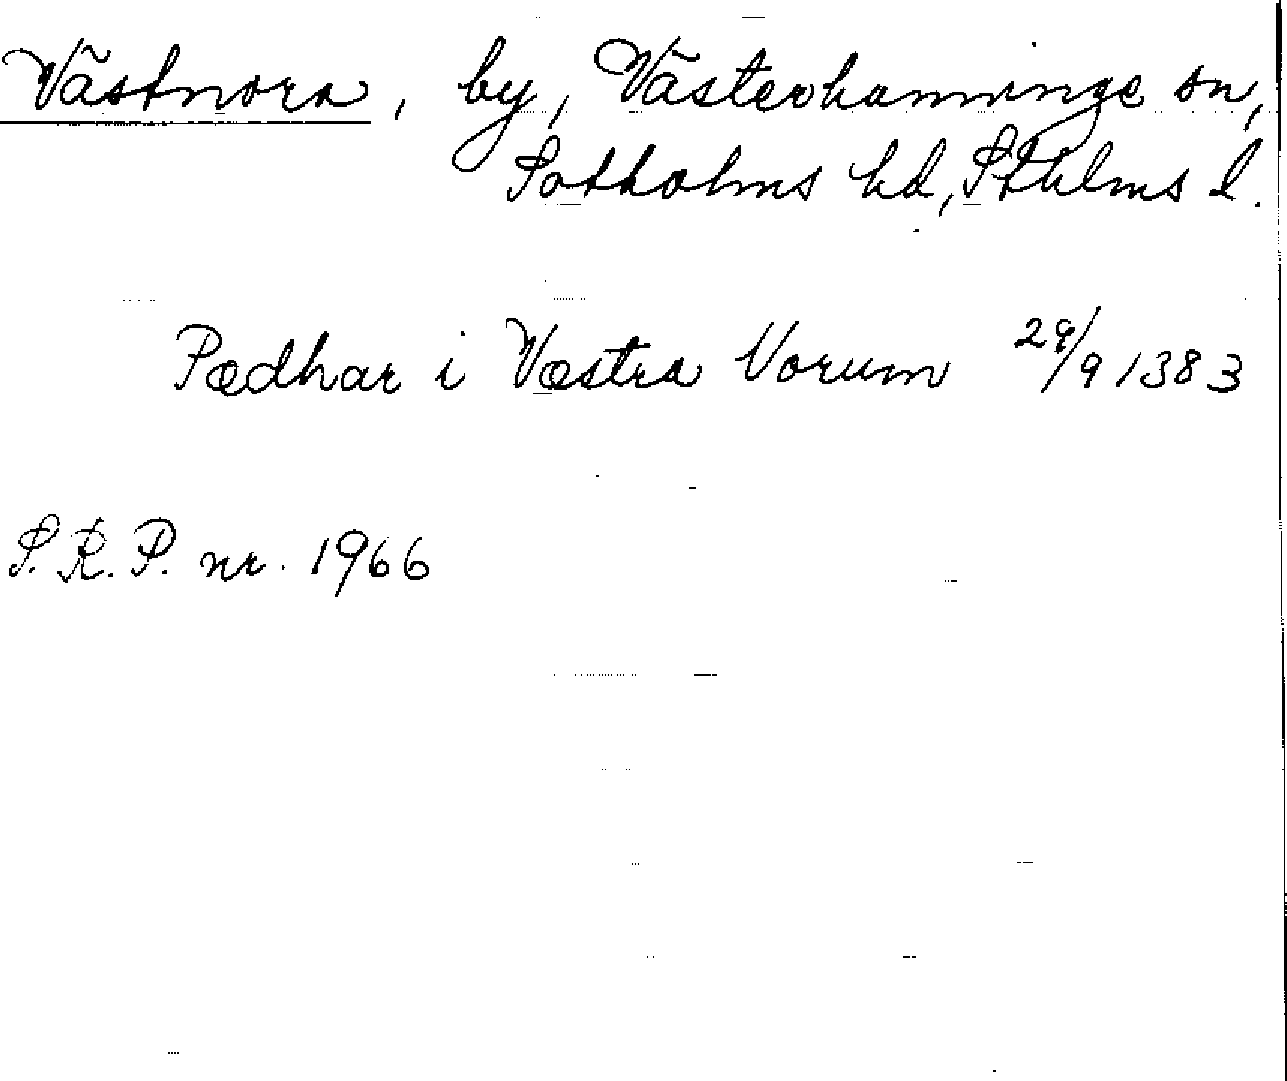 Västnora, by, Västerhanninge sn,
Sotholms hd, Sthlms l.
Pædhar i Væstra Norum 29/9 1383
S.R.P. nr. 1966